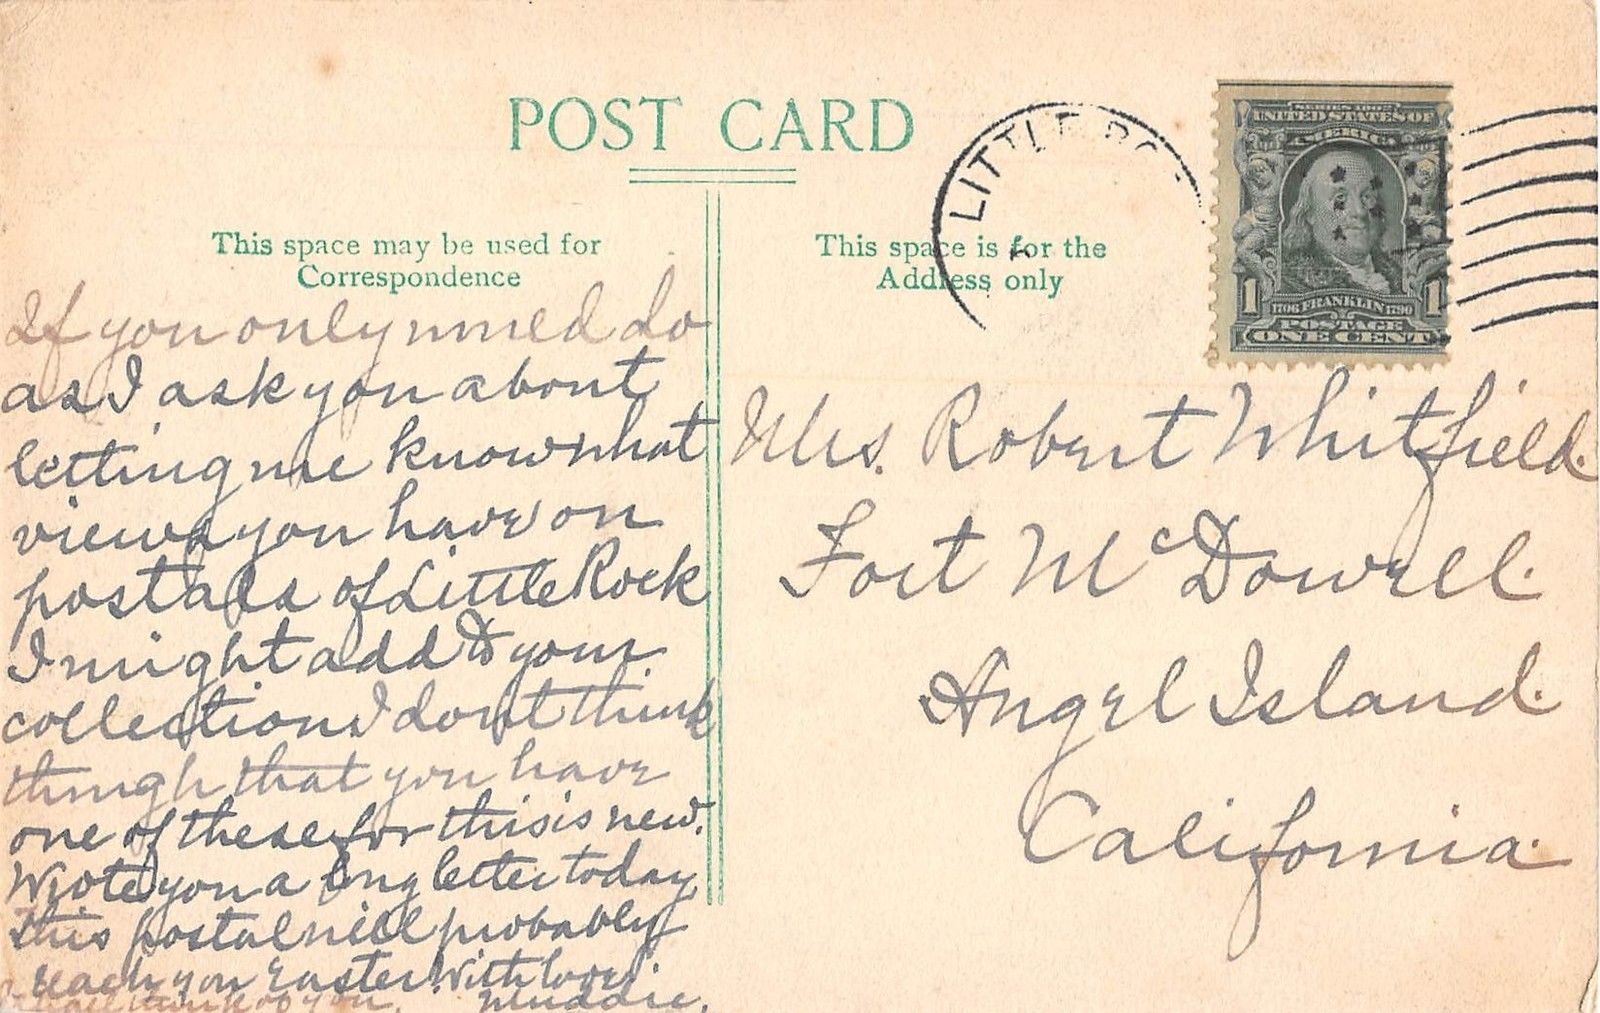 POST CARD
This space may be used for
Correspondence
This space is for the
Address only
LITTLE ROC
SERIES 1902
UNITED STATES OF
AMERICA
1 1706 FRANKLIN 1790 1
POSTAGE
ONE CENT
If you only would do
as I ask you about
letting me know what
views you have on
postals of Little Rock
I might add to your
collection I don't think
though that you have
one of these for this is new.
Wrote you a long letter today
This postal will probably
reach you Easter. With love,
shall think of you. Muddie.
Mrs. Robert Whitfield.
Fort McDowell.
Angel Island.
California.